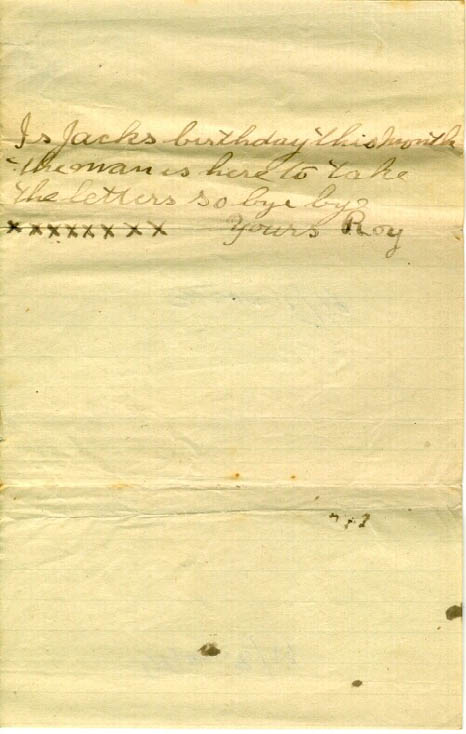 Is Jacks birthday this month
the man is here to take
the letters so bye bye
xxxxxxxx Yours Roy